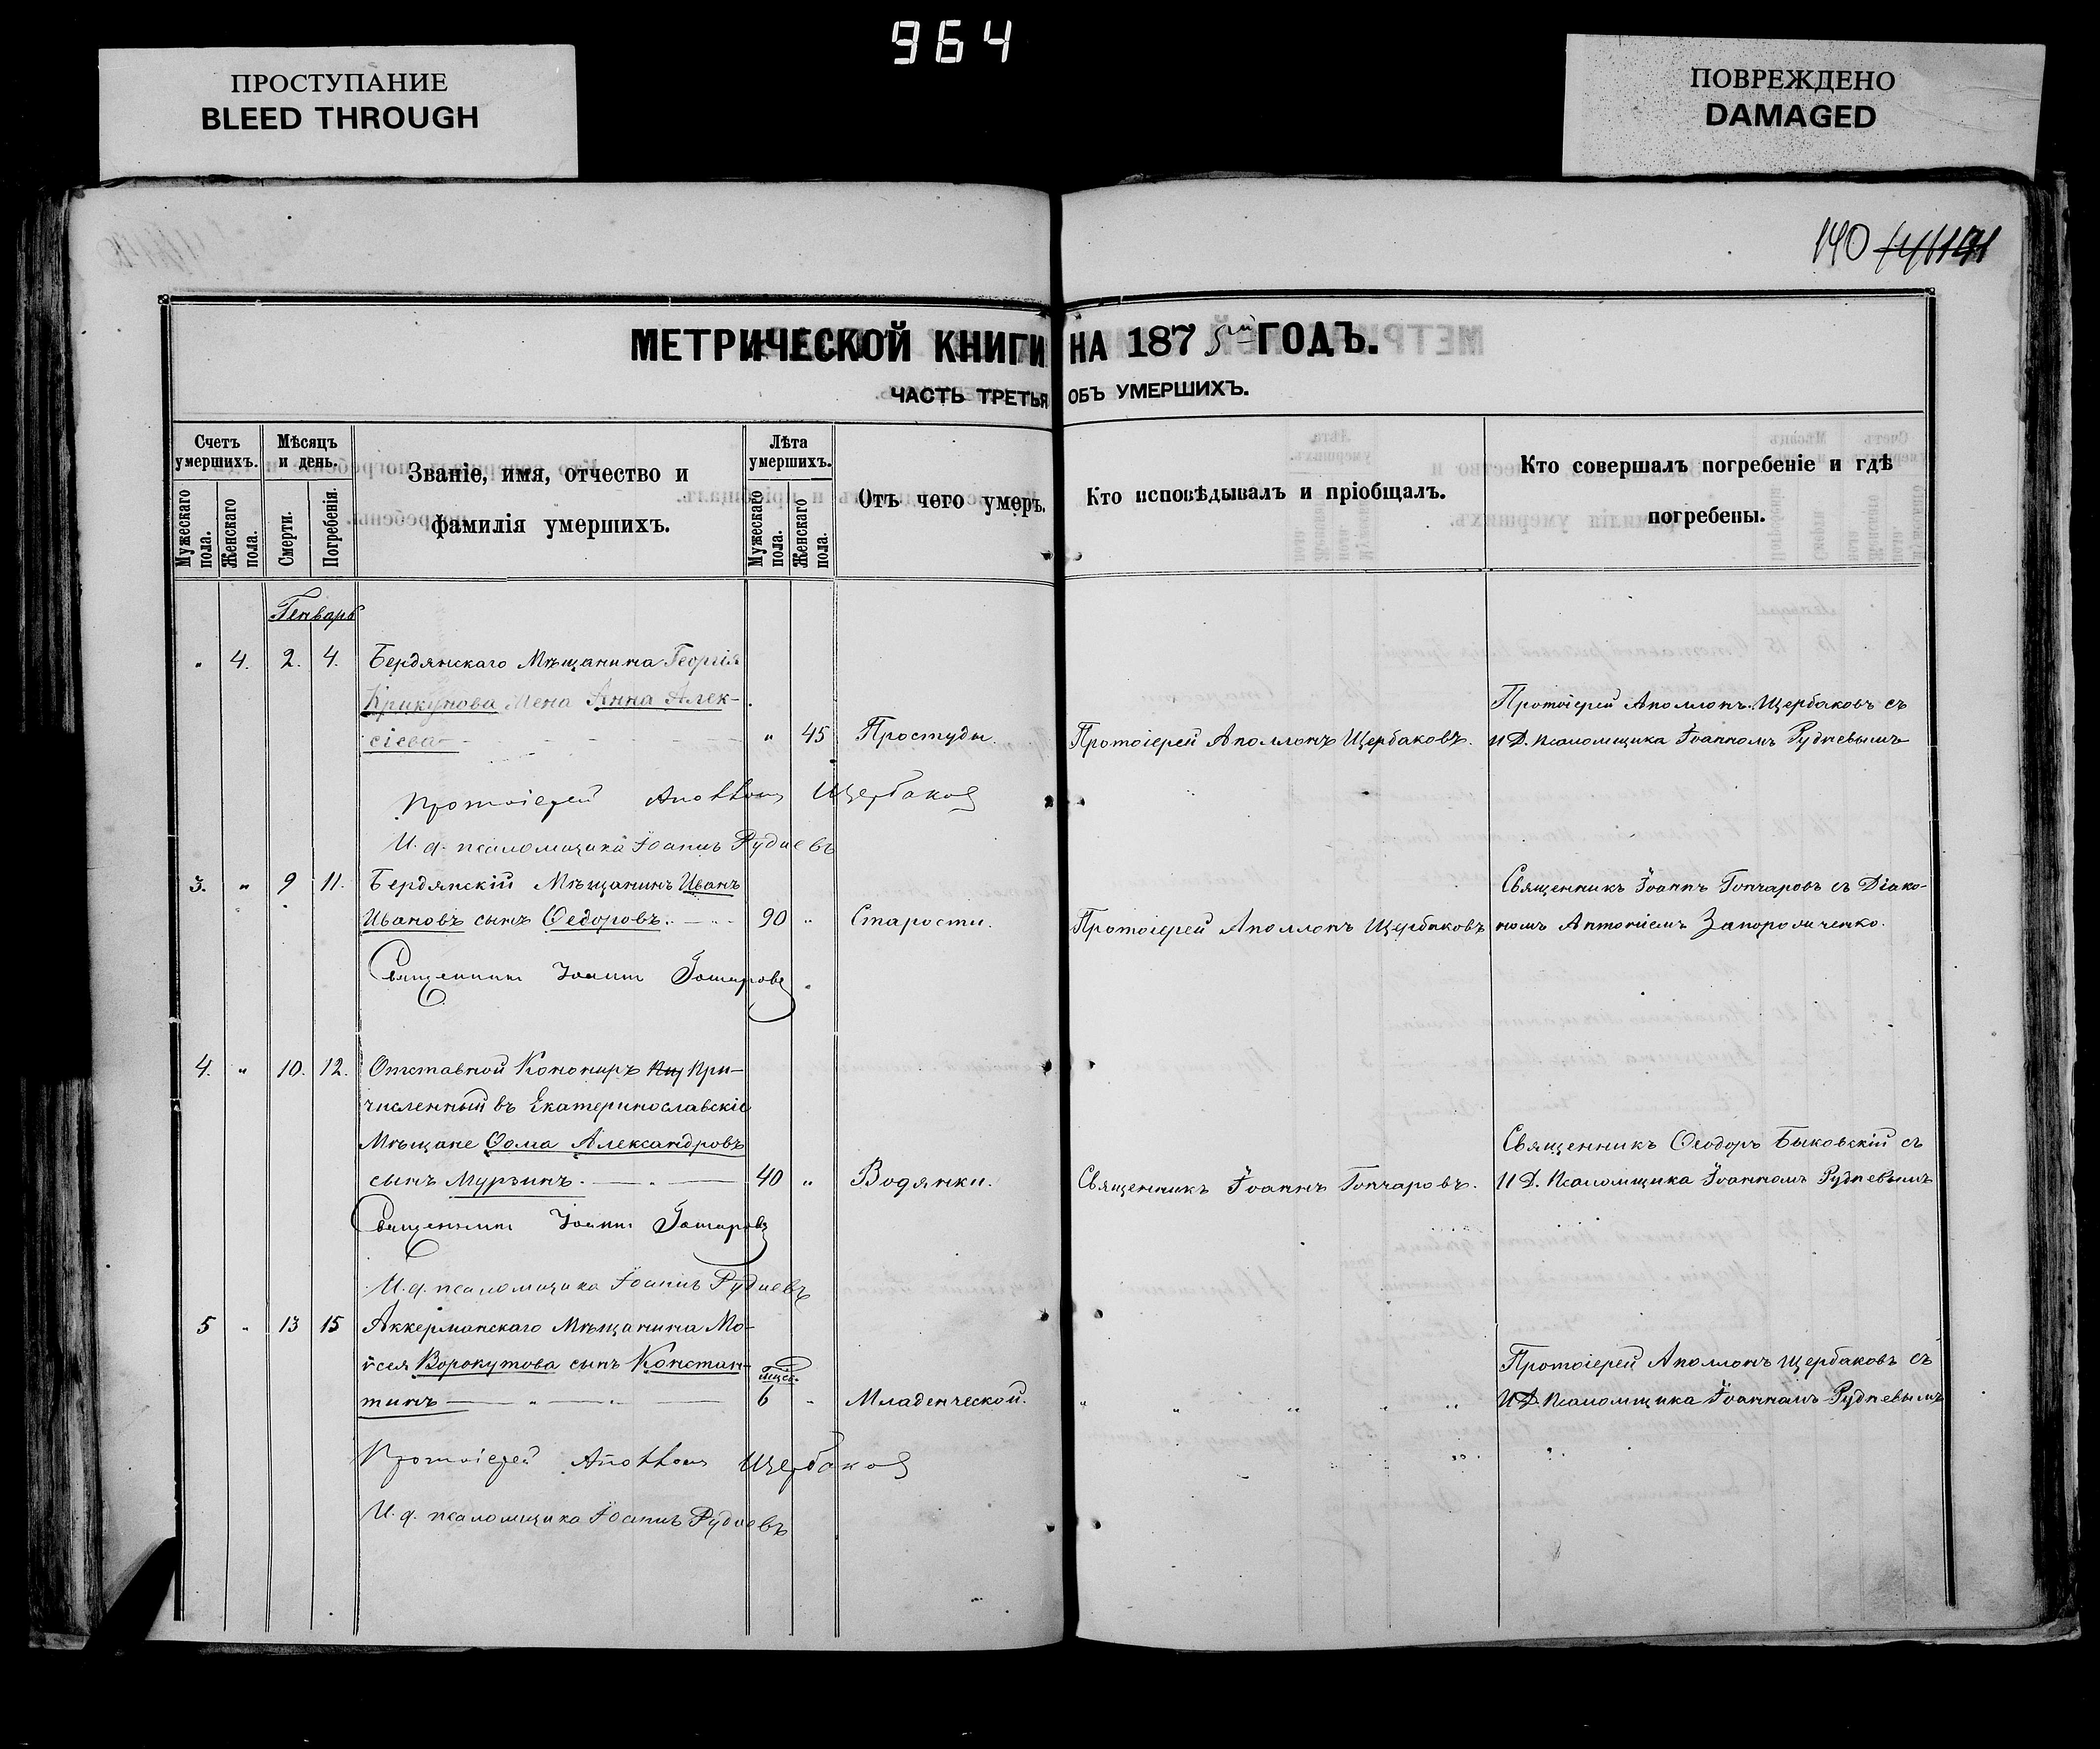 964
ПРОСТУПАНИЕ
BLEED THROUGH
ПОВРЕЖДЕНО
DAMAGED
140
МЕТРИЧЕСКОЙ КНИГИ НА 1875й ГОДЪ.
ЧАСТЬ ТРЕТЬЯ ОБЪ УМЕРШИХЪ.
Счетъ умершихъ.
Мужескаго пола.
Женскаго пола.
Мѣсяцъ и день.
Смерти.
Погребенія.
Званіе, имя, отчество и
фамилія умершихъ.
Лѣта умершихъ.
Мужескаго пола.
Женскаго пола.
Отъ чего умеръ.
Кто исповѣдывалъ и пріобщалъ.
Кто совершалъ погребеніе и гдѣ
погребены.
Генварь
" 4. 2. 4. Бердянскаго Мѣщанина Георгія
Крикунова Жена Анна Алек-
Протоіерей Аполлонъ Щербаковъ съ
сіева " 45 Простуды. Протоіерей Аполлонъ Щербаковъ. И.Д. Псаломщика Іоанномъ Рудневымъ
Протоіерей Аполлонъ Щербаковъ
И. д. псаломщика Іоаннъ Рудневъ
3. " 9 11. Бердянскій Мѣщанинъ Иванъ
Священникъ Іоаннъ Гончаровъ съ Діако-
Ивановъ сынъ Ѳедоровъ. 90 " Старости. Протоіерей Аполлонъ Щербаковъ номъ Антоніемъ Запорожченко.
Священникъ Іоаннъ Гончаровъ
4. " 10. 12. Отставной Конониръ При-
численный въ Екатеринославскіе
Мѣщане Ѳома Александровъ
Священникъ Ѳеодоръ Быковскій съ
сынъ Мурзинъ. 40 " Водянки. Священникъ Іоаннъ Гончаровъ. И.Д. Псаломщика Іоанномъ Рудневымъ
Священникъ Іоаннъ Гончаровъ
И. д. псаломщика Іоаннъ Рудневъ
5 " 13 15 Аккерманскаго Мѣщанина Мо-
ѵсея Ворокутова сынъ Констан-
мѣс.
Протоіерей Аполлонъ Щербаковъ съ
тинъ 6 " Младенческой. " " " " " И.Д. Псаломщика Іоанномъ Рудневымъ
Протоіерей Аполлонъ Щербаковъ
И. д. псаломщика Іоаннъ Рудневъ